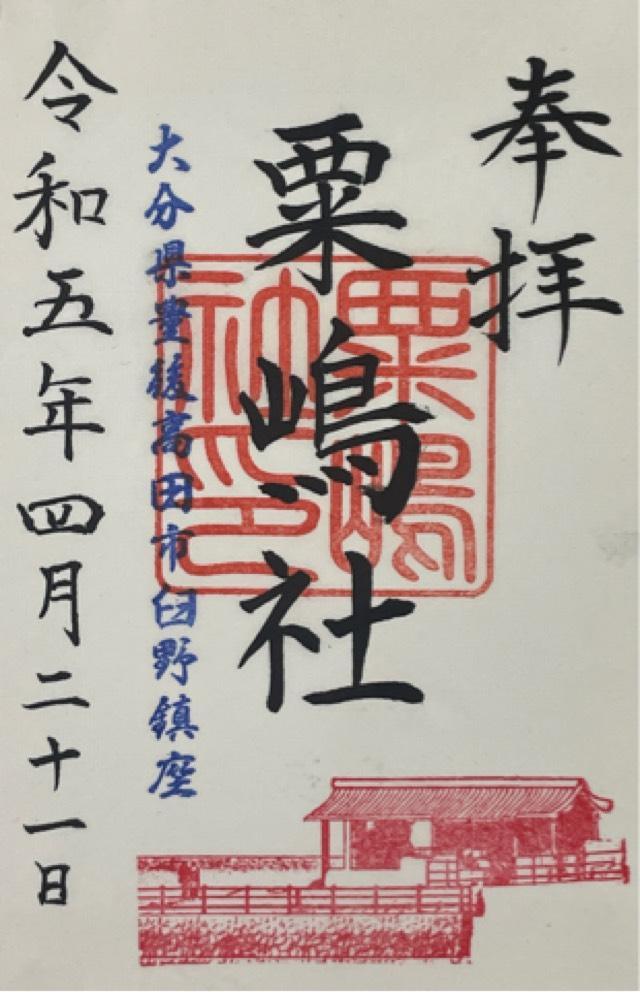 奉拝
粟嶋社
粟嶋
社印
大分県豊後高田市臼野鎮座
令和五年四月二十一日